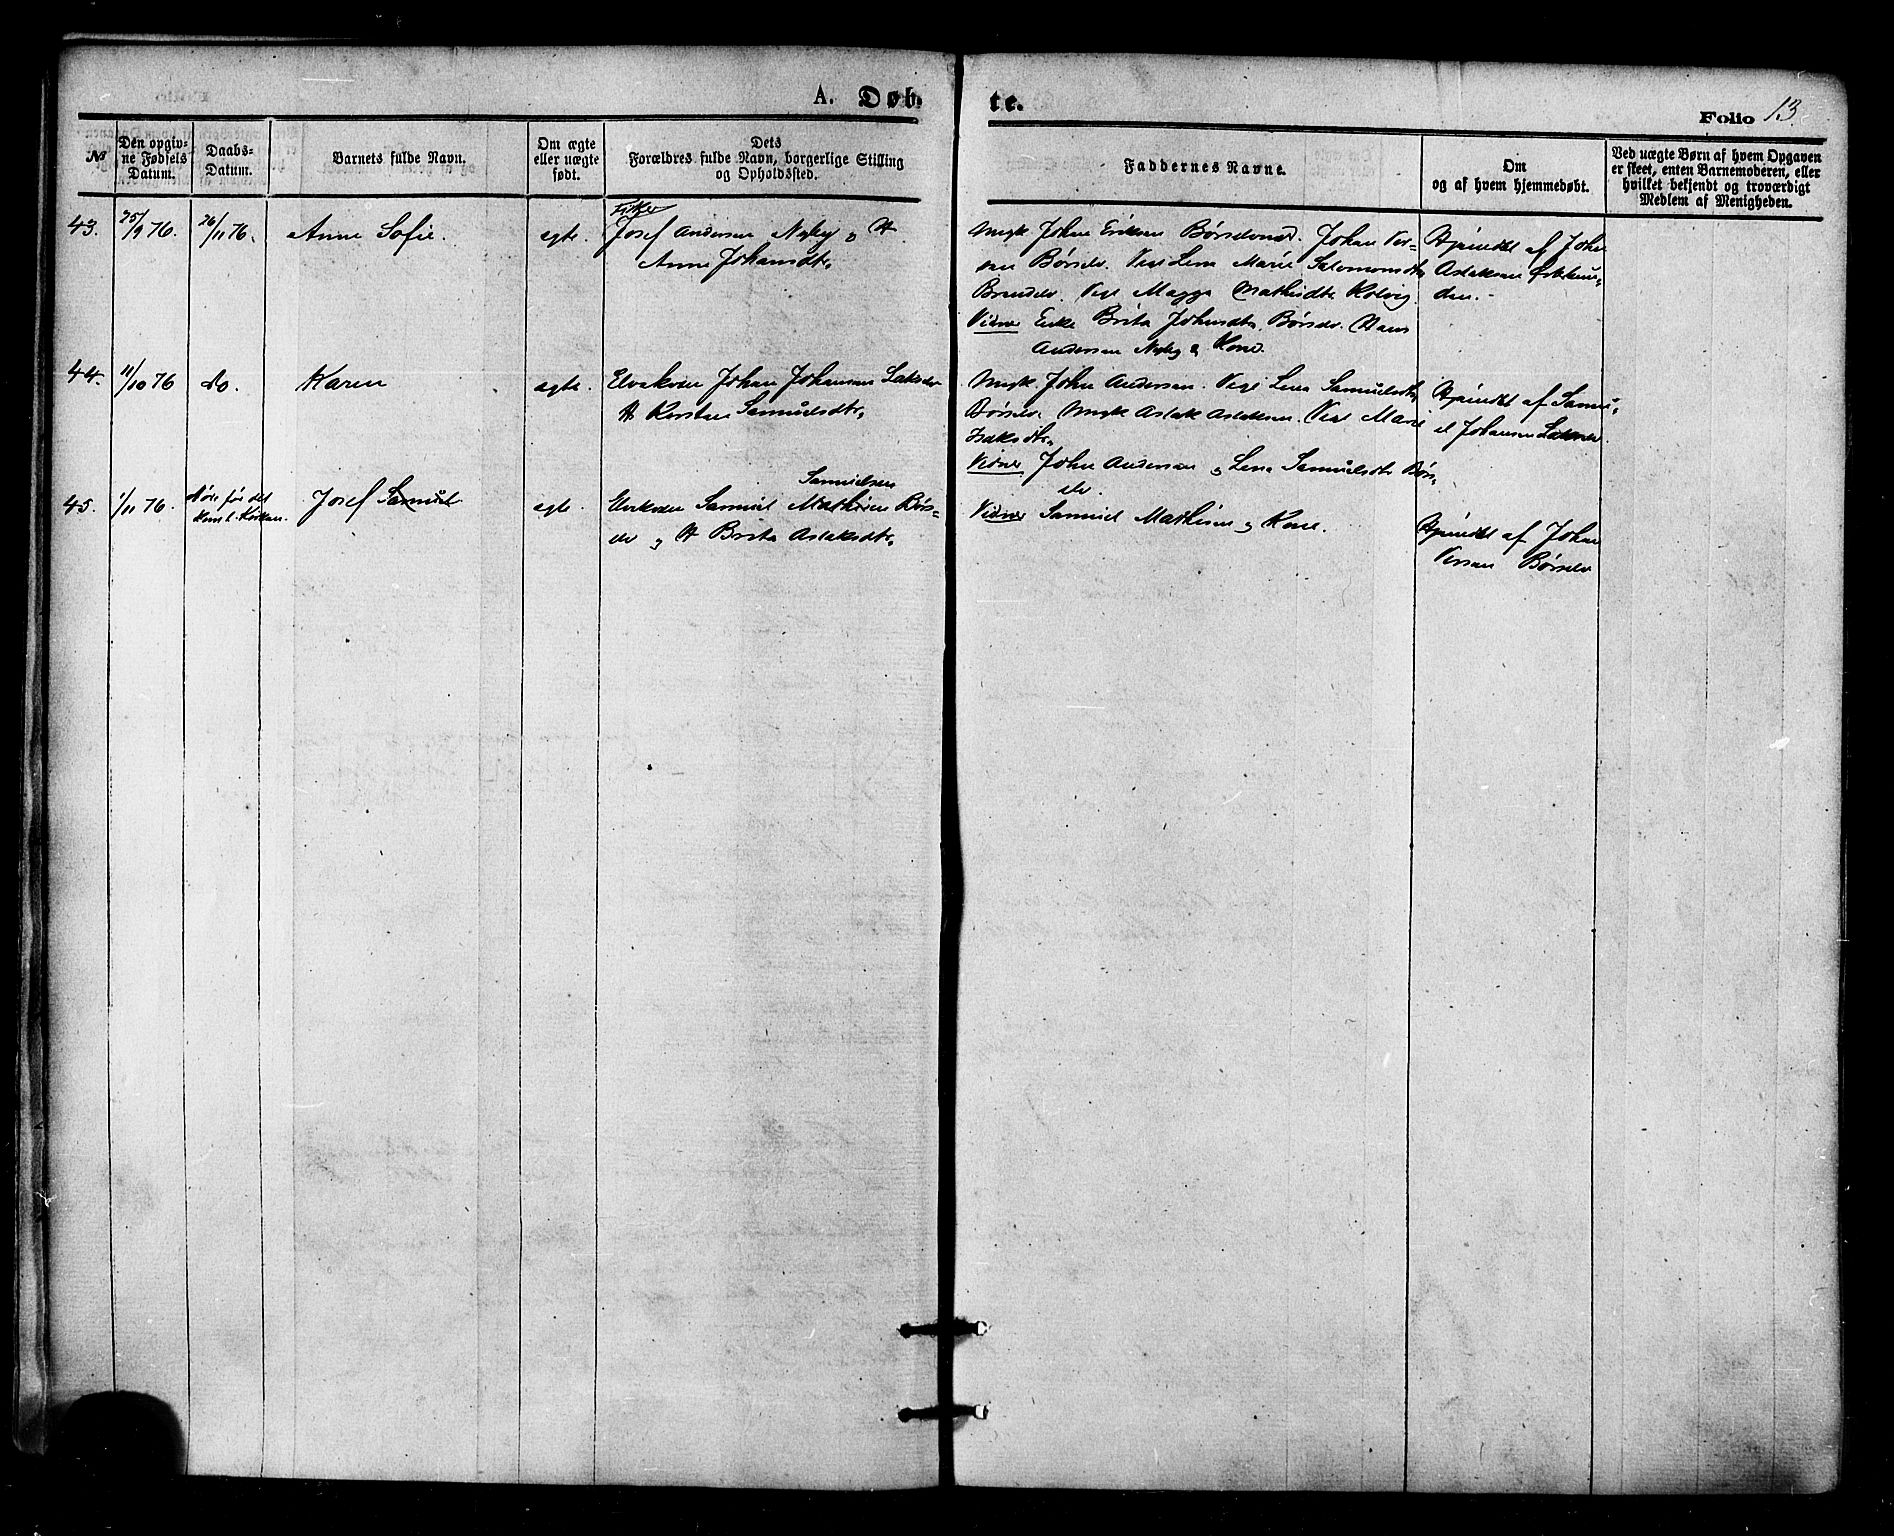 A. Døbte.
Folio 13.
No
Den opgivne Fødsels Datum.
Daabs-Datum.
Barnets fulde Navn.
Om ægte eller uægte født.
Dets Forældres fulde Navn, borgerlige Stilling og Opholdssted.
Faddernes Navne.
Om og af hvem hjemmedøbt.
Ved uægte Børn af hvem Opgaven er skeet, enten Barnemoderen, eller hvilket bekjendt og troværdigt Medlem af Menigheden.
43. 25/9 76. 26/11 76. Anne Sofie. egte.
Fisker
Josef Andersen Nyby og H
Anne Johansdtr.
Ungk. Johan Eriksen Børselvnes. Johan Ver-
san Børselv. Lena Marie Salomonsdtr
Brendelv. Magga Mathisdtr Kolvig.
Vidner Enke Brita Johnsdtr Børselv. Hans
Andersen Nyby og Kone.
Hjemdbt af Johan
Aslaksen
den.
44. 11/10 76 do. Karen egte.
Elvekven Johan Johansen Lakselv
H Kirsten Samuelsdtr.
Ungk. John Andersen. Lena Samuelsdtr
Børselv. Ungk Aslak Aslaksen. Marie
Isaksdtr.
Vidner John Andersen og Lena Samuelsdtr Børs-
elv.
Hjemdbt af Samu-
el Johansen Lakselv.
45. 1/11 76. Døde før det
kom t. Kirken. Josef Samuel egte.
Samuelsen
Elvekven Samuel Mathisen Børs-
elv og H Brita Aslaksdtr.
Vidner Samuel Mathisen og Kone.
Hjemdbt af Johan
Versan Børselv